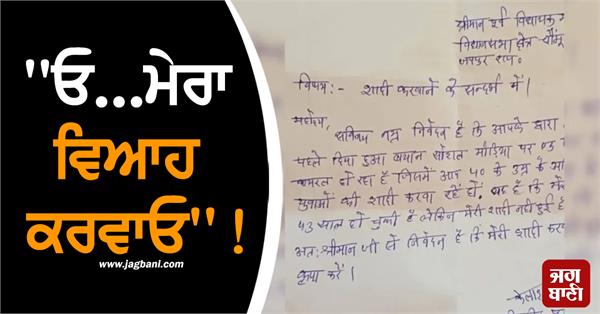 "ਓ...ਮੇਰਾ
ਵਿਆਹ
ਕਰਵਾਓ" !
www.jagbani.com
श्रीमान पूर्व विधायक
विधानसभा क्षेत्र चौमूं
जयपुर राज.
विषय:- शादी करवाने के सन्दर्भ में।
महोदय,
सविनय नम्र निवेदन है कि आपके द्वारा
पहले दिया हुआ बयान सोशल मीडिया पर
वायरल हो रहा है जिसमें आप 40 के उम्र के
युवाओं की शादी करवा रहें हो,
43 साल हो चुकी है लेकिन मेरी शादी नहीं हुई है
अत: श्रीमान जी से निवेदन है कि मेरी शादी
कृपा करें।
ਜਗ
ਬਾਣੀ